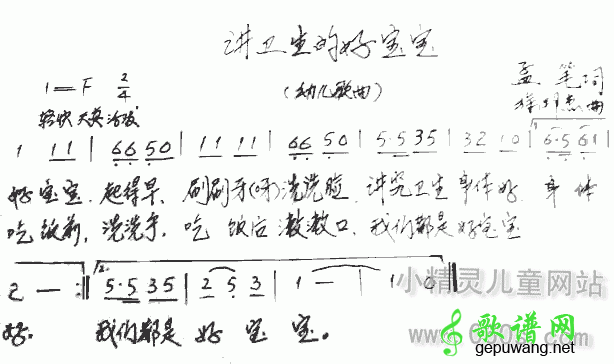 讲卫生的好宝宝
(幼儿歌曲)
1=F 2/4
孟 笔 词
曲
轻快 天真 活泼
1 11 | 66 50 | 11 11 | 66 50 | 5·5 35 | 32 10 | 1. 6·5 61 |
好宝宝 起得早, 刷刷牙(呀)洗洗脸 讲究卫生身体好, 身体
吃饭前, 洗洗手, 吃饭后漱漱口, 我们都是好宝宝
2 — :‖ 2. 5·5 35 | 2 5 3 | 1 — | 1 0 ‖
好. 我们都是 好宝宝。
小精灵儿童网站
歌谱网
gepuwang.net